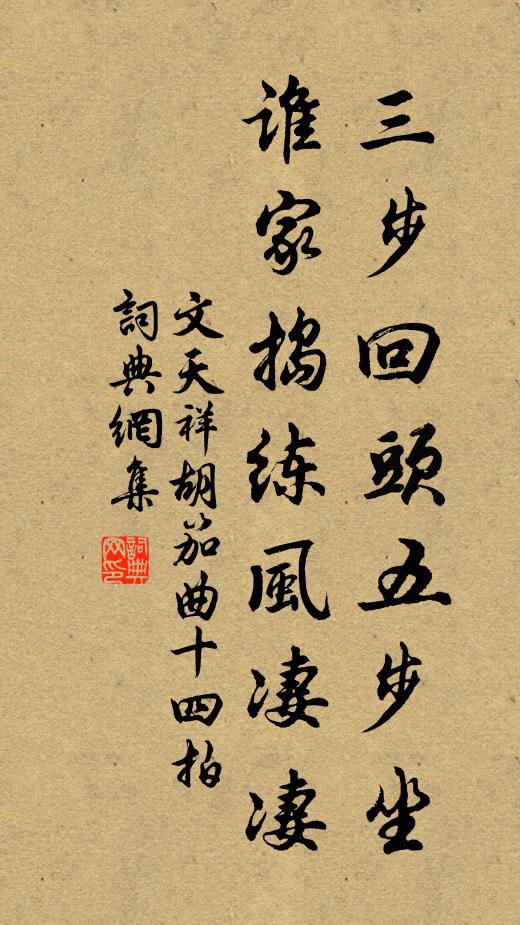 三步回頭五步坐
誰家搗練風凄凄
文天祥胡笳曲十四拍
詞典網集
詞典
网印